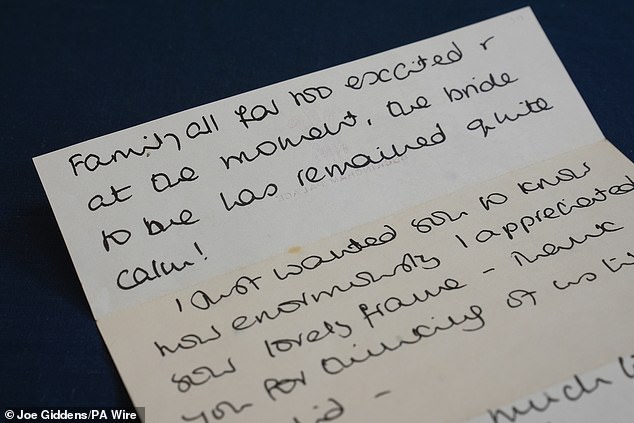 Family all far too excited &
at the moment, the bride
to be has remained quite
calm!
I just wanted you to know
how enormously I appreciated
your lovely frame - thank
you for thinking of us
-
much
© Joe Giddens/PA Wire